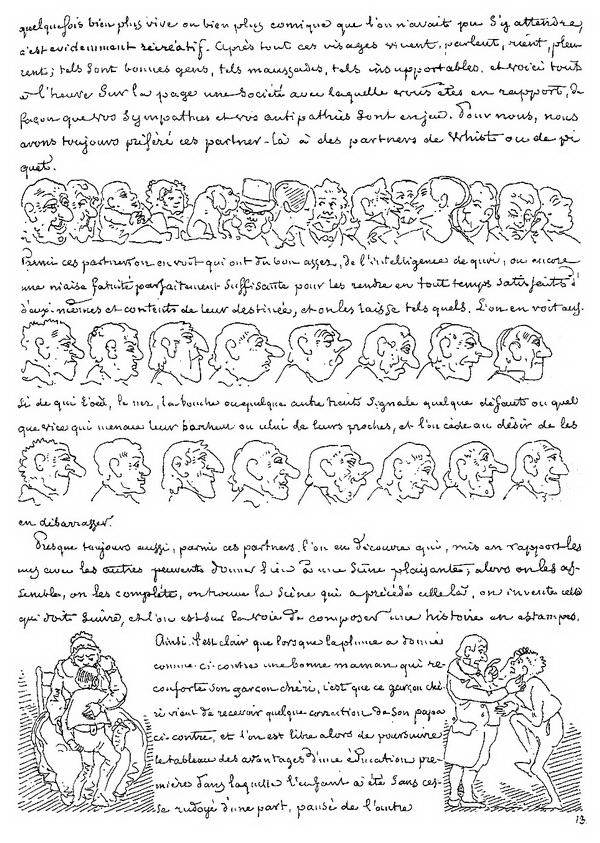 quelquefois bien plus vive ou bien plus comique que l'on n'avait pu s'y attendre,
c'est evidemment récréatif. Après tout ces visages vivent, parlent, rient, pleu-
rent; tels sont bonnes gens, tels maussades, tels insupportables, et voici tout
à l'heure sur la page une société avec laquelle vous êtes en rapport, de
façon que vos sympathies et vos antipathies sont en jeu. Pour nous, nous
avons toujours préféré ces partner-là à des partners de Whist ou de pi
quet.
Parmi ces partners on en voit qui ont du bon assez, de l'intelligence de quoi, ou encore
une niaise fatuité parfaitement suffisante pour les rendre en tout temps satisfaits d'
d'eux-mêmes et contents de leur destinée, et on les laisse tels quels. L'on en voit aus-
si de qui l'oeil, le nez, la bouche ou quelque autre traits signale quelque défauts ou quel
que vice qui menace leur bonheur ou celui de leurs proches, et l'on cède au désir de les
en débarrasser.
Presque toujours aussi, parmi ces partners, l'on en découvre qui, mis en rapport les
uns avec les autres peuvents donner lieu à une Scène plaisante; alors on les as-
semble, on les complète, on trouve la Scène qui a précédé celle là, on invente celle
qui doit suivre, et l'on est sur la voie de composer une histoire en estampes.
Ainsi, il est clair que lorsque la plume a donné
comme ci-contre une bonne maman qui ré-
conforte son garçon chéri, c'est que ce garçon ché
ri vient de recevoir quelque correction de son papa
ci-contre, et l'on est libre alors de poursuivre
le tableau des avantages d'une éducation pre-
mière dans laquelle l'enfant a été sans ces-
se rudoyé d'une part, pansé de l'autre
13